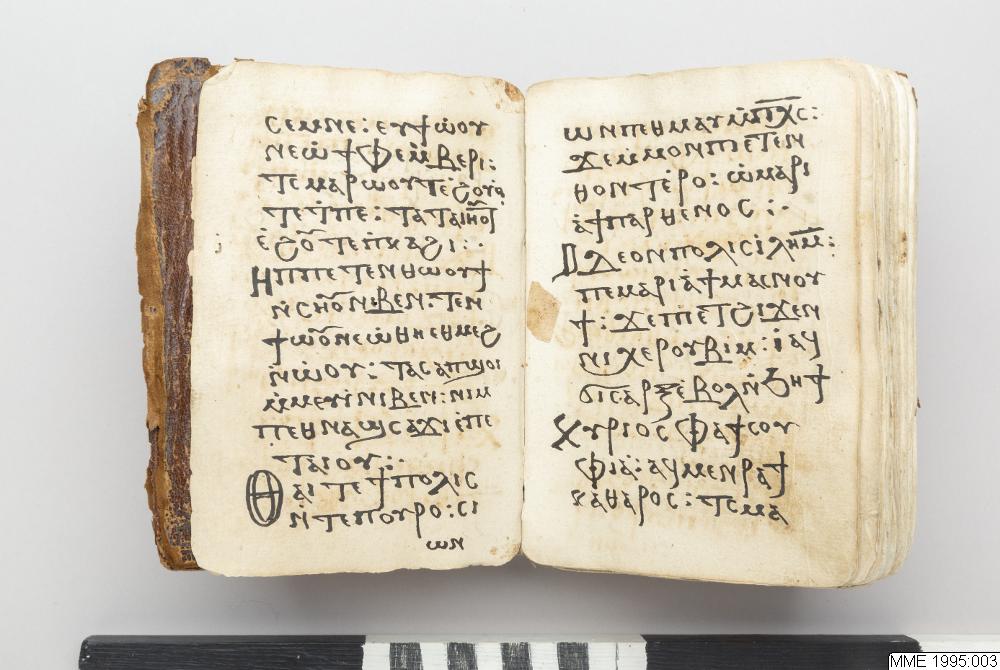 ⲥⲉⲙⲛⲉ: ⲉⲩϯⲱ̀ⲟⲩ
ⲛⲉⲱ̀ ϯⲫⲉⲙ̀ⲃⲉⲣⲓ:
ⲧⲉⲙⲁⲣⲱⲟⲩⲧ ⲉ̀ϩⲟⲩⲟ̀
ⲧⲉ ⲧ̀ⲡⲉ: ⲧⲁⲧⲁⲓⲏⲟⲩⲧ
ⲉ̀ϩⲟⲩⲟⲧⲉ ⲡ̀ⲕⲁϩⲓ:·
Ⲏⲡⲡⲉ ⲧⲉⲛⲑⲱⲟⲩϯ
ⲛ̀ⲥⲏⲟⲩ ⲛⲓⲃⲉⲛ: ⲧⲉⲛ
ϯⲱⲟⲩ ⲛⲉⲱ̀ ⲑⲏⲉⲑⲙⲉϩ
ⲛ̀ⲱⲟⲩ: ⲧⲁⲥⲁⲡϣⲱⲓ
ⲙ̀ⲙⲉⲩⲓ̀ ⲛⲓⲃⲉⲛ: ⲛⲓⲙ
ⲡⲉⲑⲛⲁϣⲥⲁϫⲓ ⲉ̀ⲡⲉ
ⲧⲁⲓⲟⲩ:·
Ⲑⲁⲓ ⲧⲉ ϯⲡⲟⲗⲓⲥ
ⲛ̀ⲧⲉ ⲡⲟⲩⲣⲟ: ⲥⲓ
ⲱⲛ
ⲱⲛ ⲡⲉⲑⲙⲁⲩ ⲙ̀ⲡⲭ̅ⲥ̅:
ϫⲉ ⲙ̀ⲙⲟⲛ ⲡⲉⲧⲉⲛ
ⲑⲟⲛⲧ ⲉ̀ⲣⲟ: ⲱ̀ ⲙⲁⲣⲓ
ⲁ̀ ϯⲡⲁⲣⲑⲉⲛⲟⲥ:·
Ⲓⲇⲉⲟⲛ ⲡⲟⲗⲓⲥ ⲓ̀ⲗ̅ⲏ̅ⲙ̅:
ⲡⲉ ⲙⲁⲣⲓⲁ̀ ϯⲙⲁⲥⲛⲟⲩ
ϯ: ϫⲉ ⲡⲉⲧϩⲓϫⲉⲛ
ⲛⲓⲭⲉⲣⲟⲩⲃⲓⲙ: ⲓ̀ⲁϥ
ϭⲓⲥⲁⲣⲝ ⲉ̀ⲃⲟⲗ ⲛ̀ϧⲏϯ
Ⲭⲩⲣⲓⲟⲥ ⲫⲁϯⲥⲟⲩ
ⲫⲓⲁ̀: ⲁⲩⲙⲉⲛⲣⲁϯ
ⲕⲁⲑⲁⲣⲟⲥ: ⲧⲉⲙⲁ
MME 1995:003